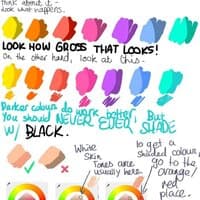 Think about it -
Look what happens.
LOOK HOW GROSS THAT LOOKS!
On the other hand, look at this.
Darker colours do work better, But
you should NEVER EVER SHADE
W/ BLACK.
White
Skin
Tones are
usually here.
To get a
shaded colour,
go to the
orange/
red
place.